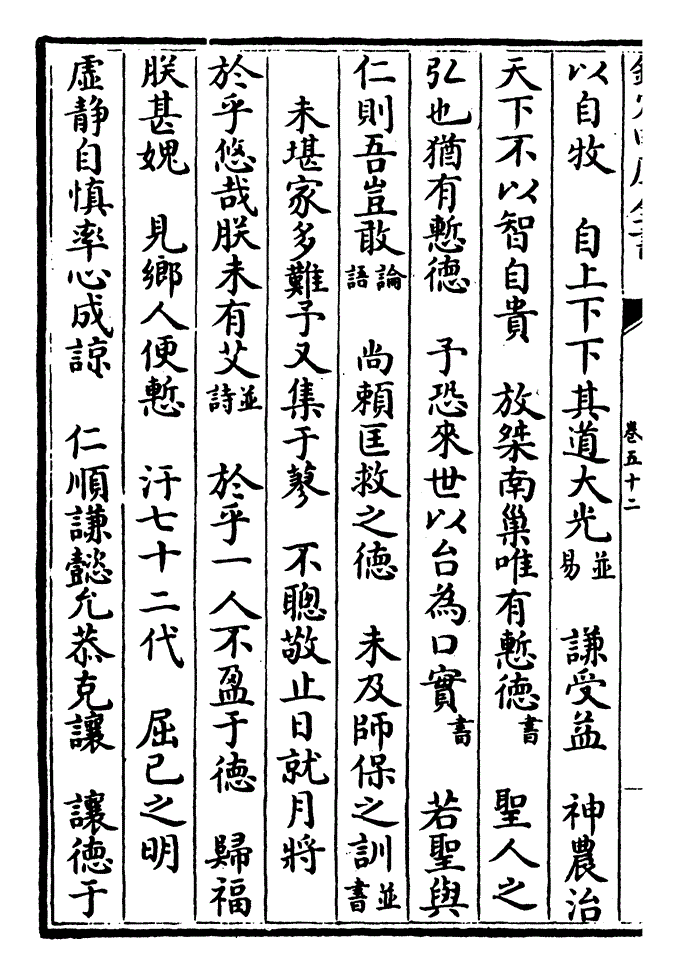 卷五十二
以自牧　自上下下其道大光並易　謙受益　神農治
天下不以智自貴　放桀南巢唯有慙徳書　聖人之
弘也猶有慙徳　予恐來世以台為口實書　若聖與
仁則吾豈敢論語　尚頼匡救之徳　未及師保之訓並書
未堪家多難予又集于蓼　不聰敬止日就月將
於乎悠哉朕未有艾並詩　於乎一人不盈于徳　歸福
朕甚媿　見鄉人便慙　汗七十二代　屈己之明
虛静自慎率心成諒　仁順謙懿允恭克讓　讓徳于